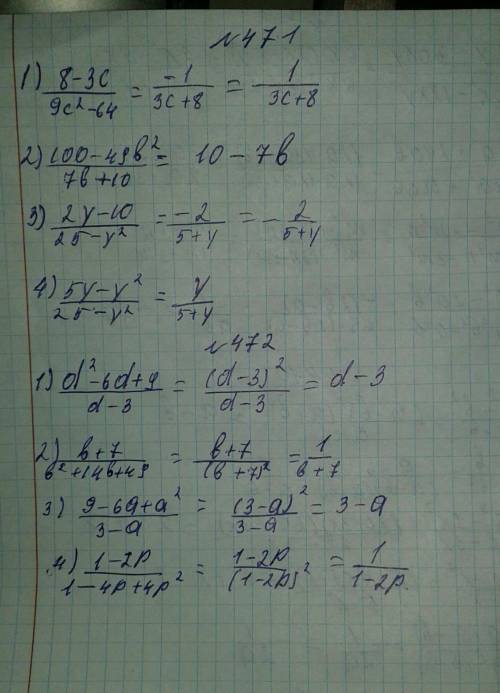 №471
1) (8-3c)/(9c²-64) = -1/(3c+8) = -1/(3c+8)
2) (100-49b²)/(7b+10) = 10-7b
3) (2y-10)/(25-y²) = -2/(5+y) = -2/(5+y)
4) (5y-y²)/(25-y²) = y/(5+y)
№472
1) (d²-6d+9)/(d-3) = (d-3)²/(d-3) = d-3
2) (b+7)/(b²+14b+49) = (b+7)/(b+7)² = 1/(b+7)
3) (9-6a+a²)/(3-a) = (3-a)²/(3-a) = 3-a
4) (1-2p)/(1-4p+4p²) = (1-2p)/(1-2p)² = 1/(1-2p)